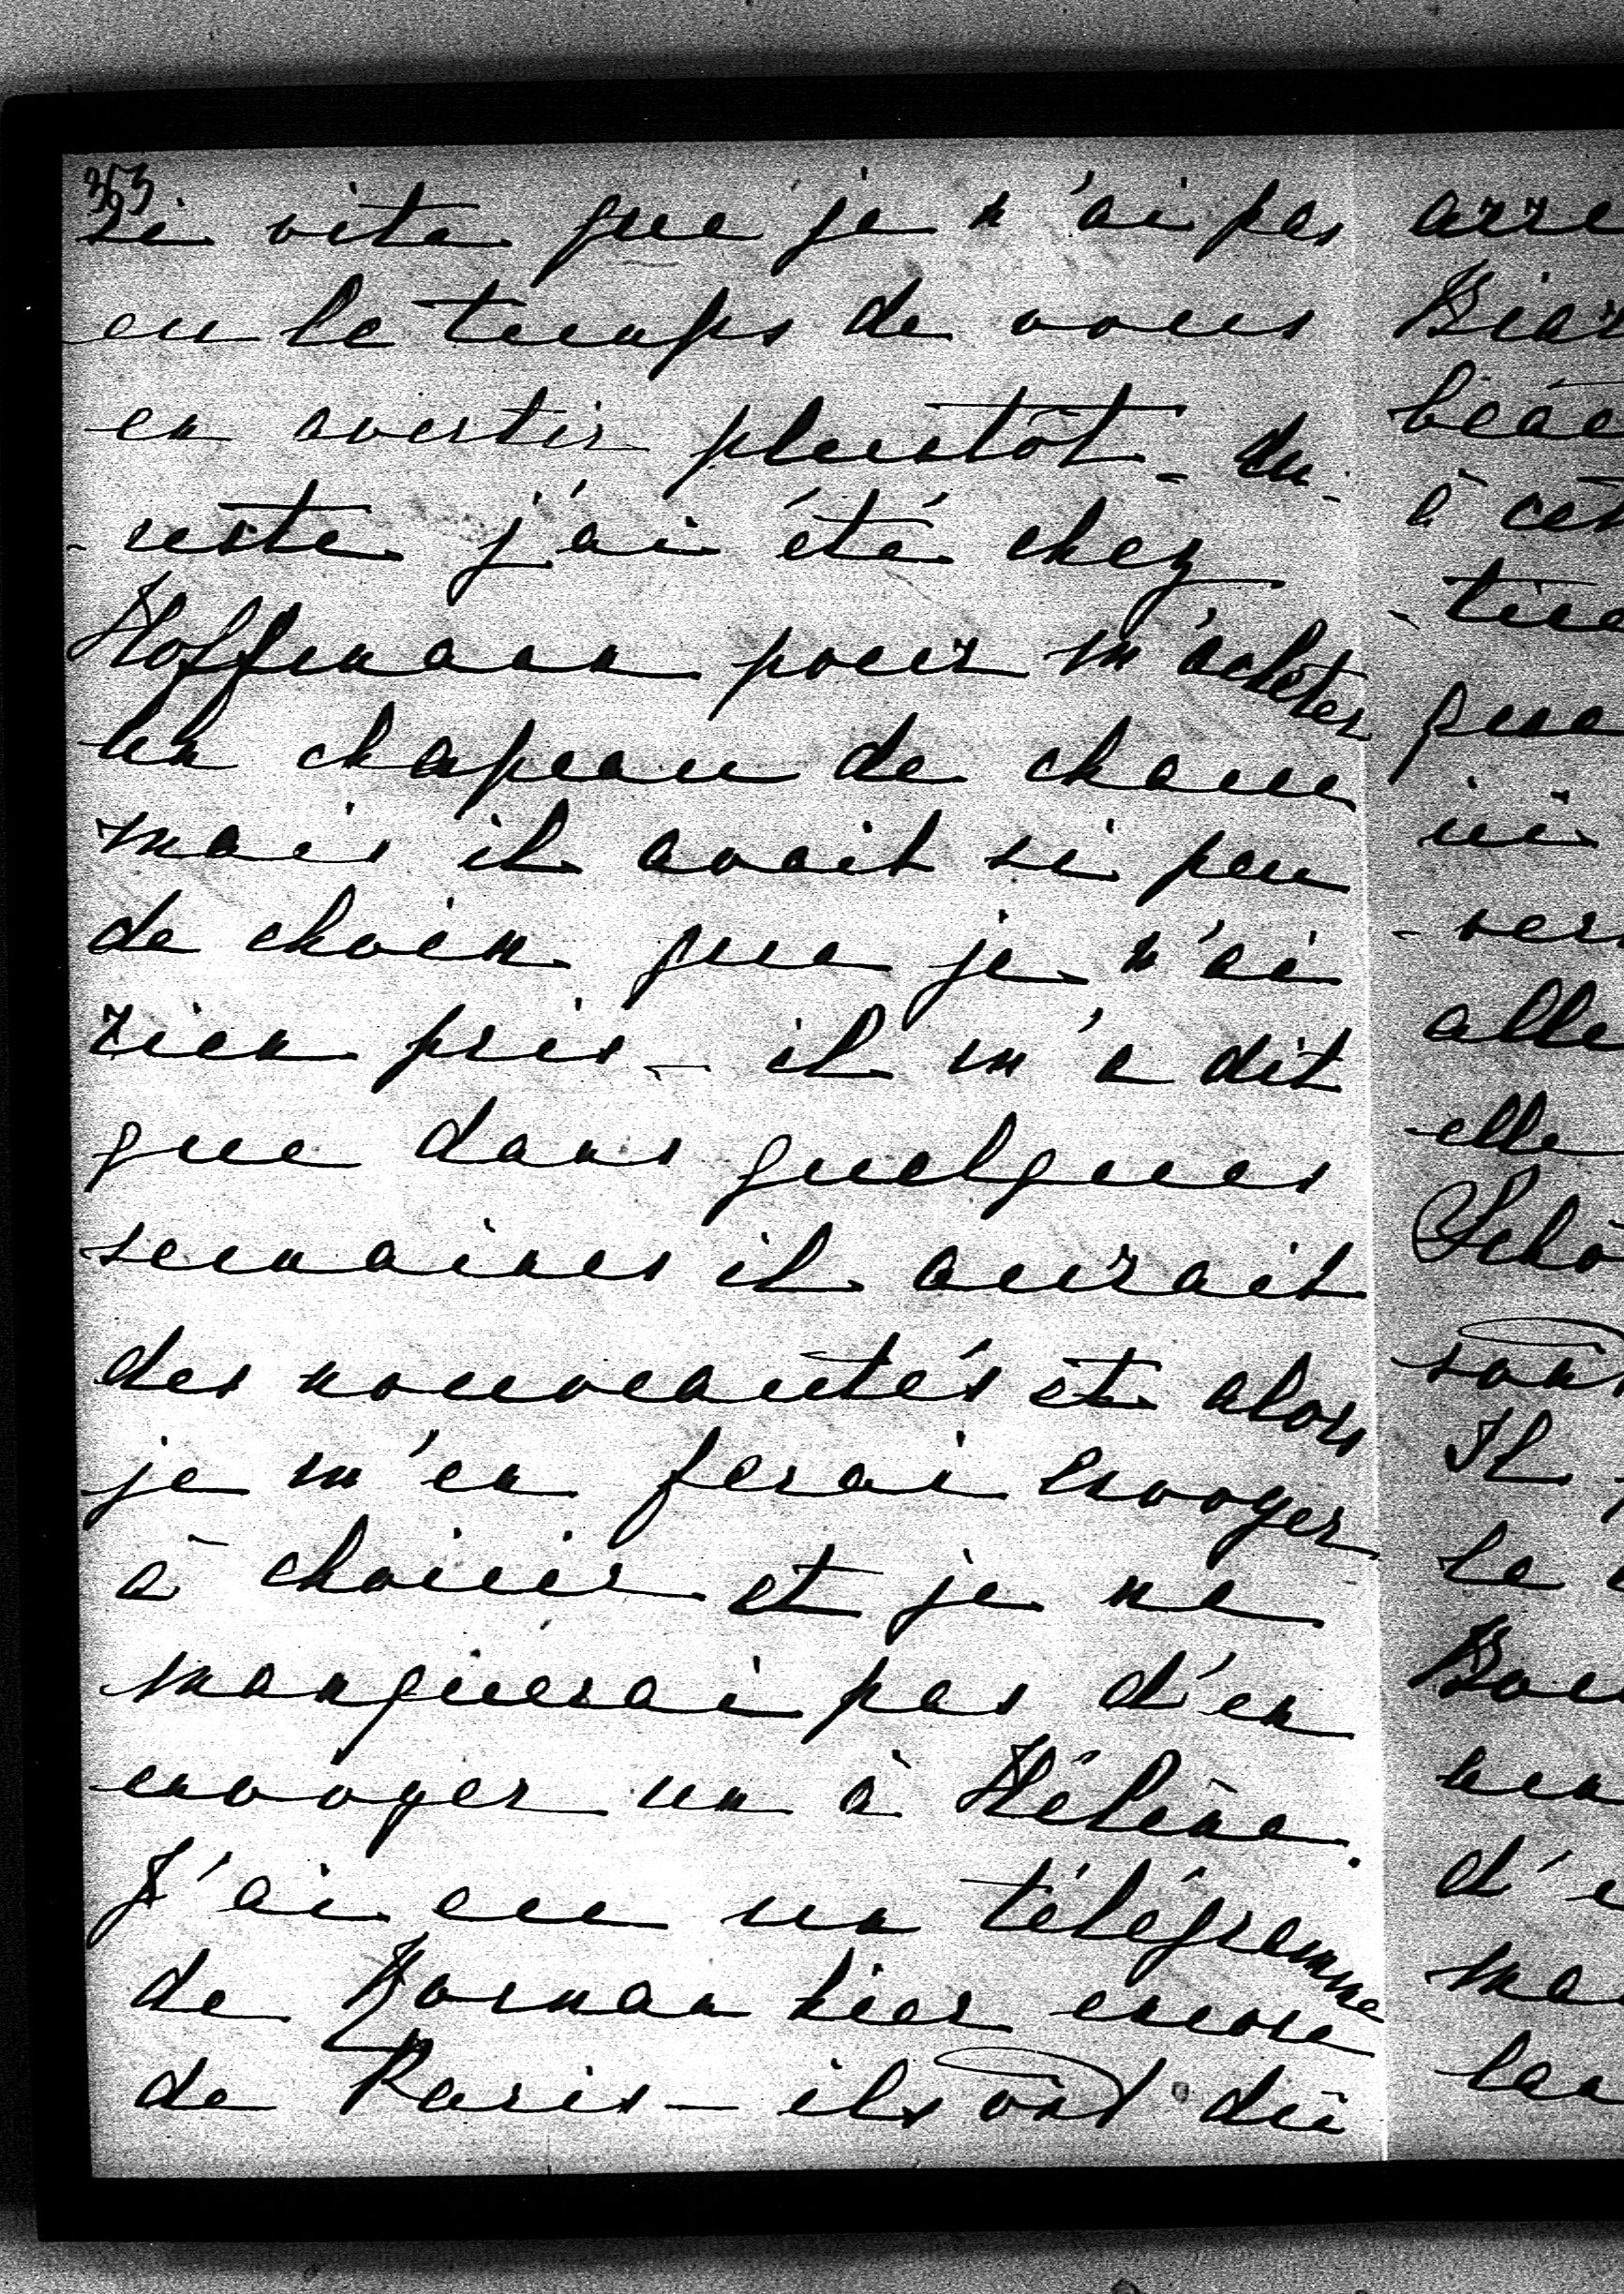 353
si vite que je n'ai pas
eu le temps de vous
en avertir pluistôt - du
- reste j'ai été chez
Hoffmann pour m'achêter
un chapeau de chaue
mais il avait si peu
de choix que je n'ai
rien pris - il m'a dit
que dans quelques
semaines il aurait
des nouveautés et alors
je m'en ferai envoyer
à choisir et je ne
manquerai pas d'en
envoyer un à Hélène.
J'ai eu un télégramme
de hier encore
de Paris - ils ont dû
arre
Biar
beau
à cet
-
que
ici
- ver
alle
elle
Schö
sont
Il
le
Bou
d'e
ma